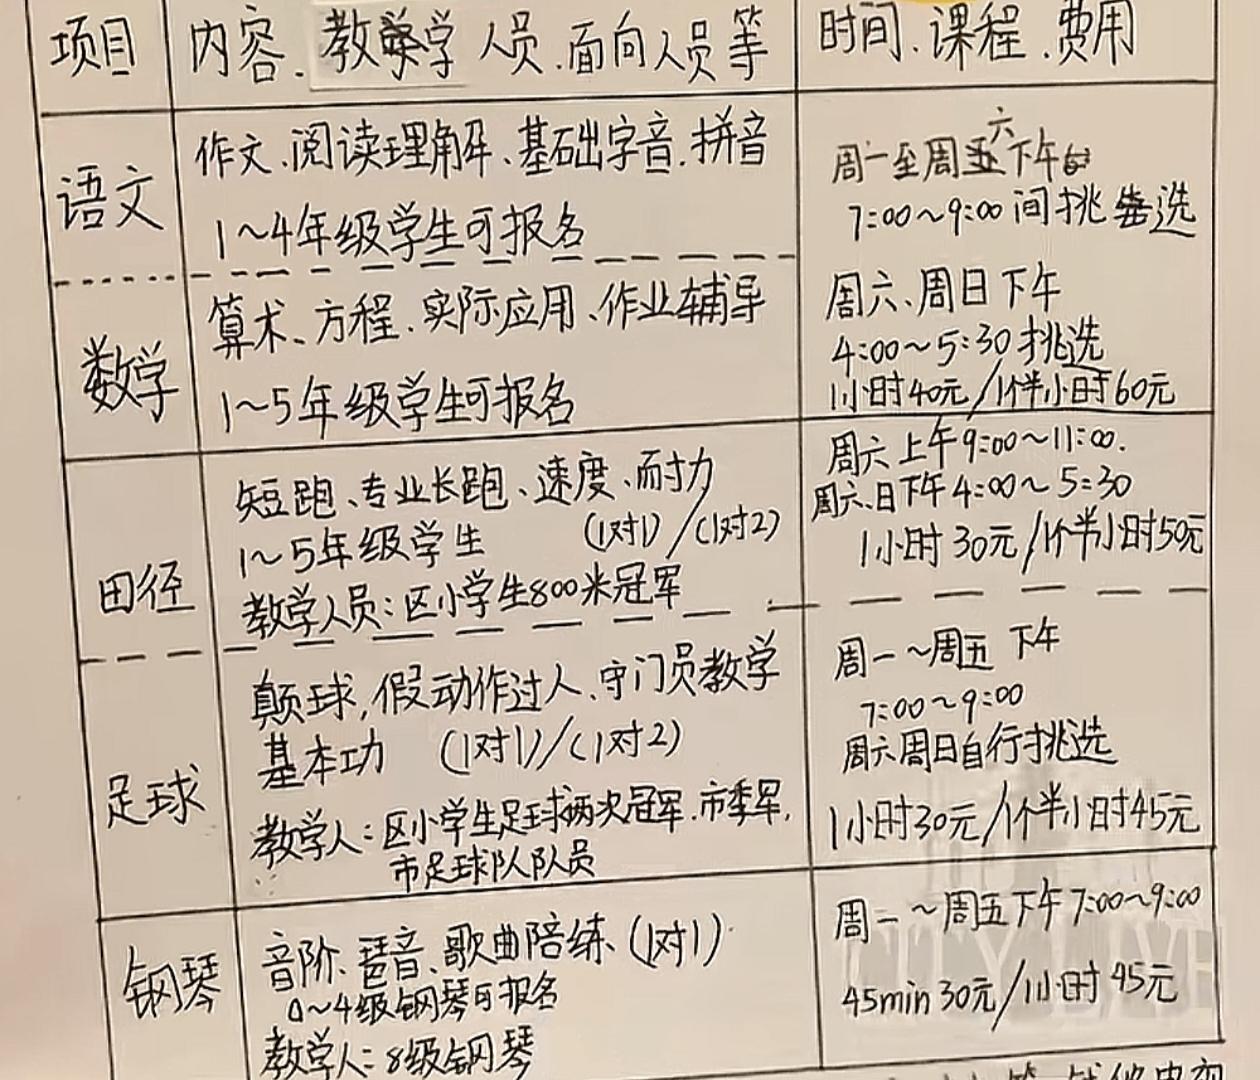 项目
内容、教学人员、面向人员等
时间、课程、费用
语文
作文、阅读理解、基础字音、拼音
1~4年级学生可报名
数学
算术、方程、实际应用、作业辅导
1~5年级学生可报名
周一至周六下午
7:00~9:00间挑选
周六、周日下午
4:00~5:30挑选
1小时40元/1个半小时60元
田径
短跑、专业长跑、速度、耐力
1~5年级学生 (1对1)/(1对2)
教学人员:区小学生800米冠军
周六上午9:00~11:00.
周六、日下午4:00~5:30
1小时30元/1个半小时50元
足球
颠球,假动作过人、守门员教学
基本功 (1对1)/(1对2)
教学人:区小学生足球两次冠军、市季军,
市足球队队员
周一~周五下午
7:00~9:00
周六周日自行挑选
1小时30元/1个半小时45元
钢琴
音阶、琶音、歌曲陪练、(1对1)
0~4级钢琴可报名
教学人:8级钢琴
周一~周五下午7:00~9:00
45min30元/1小时45元